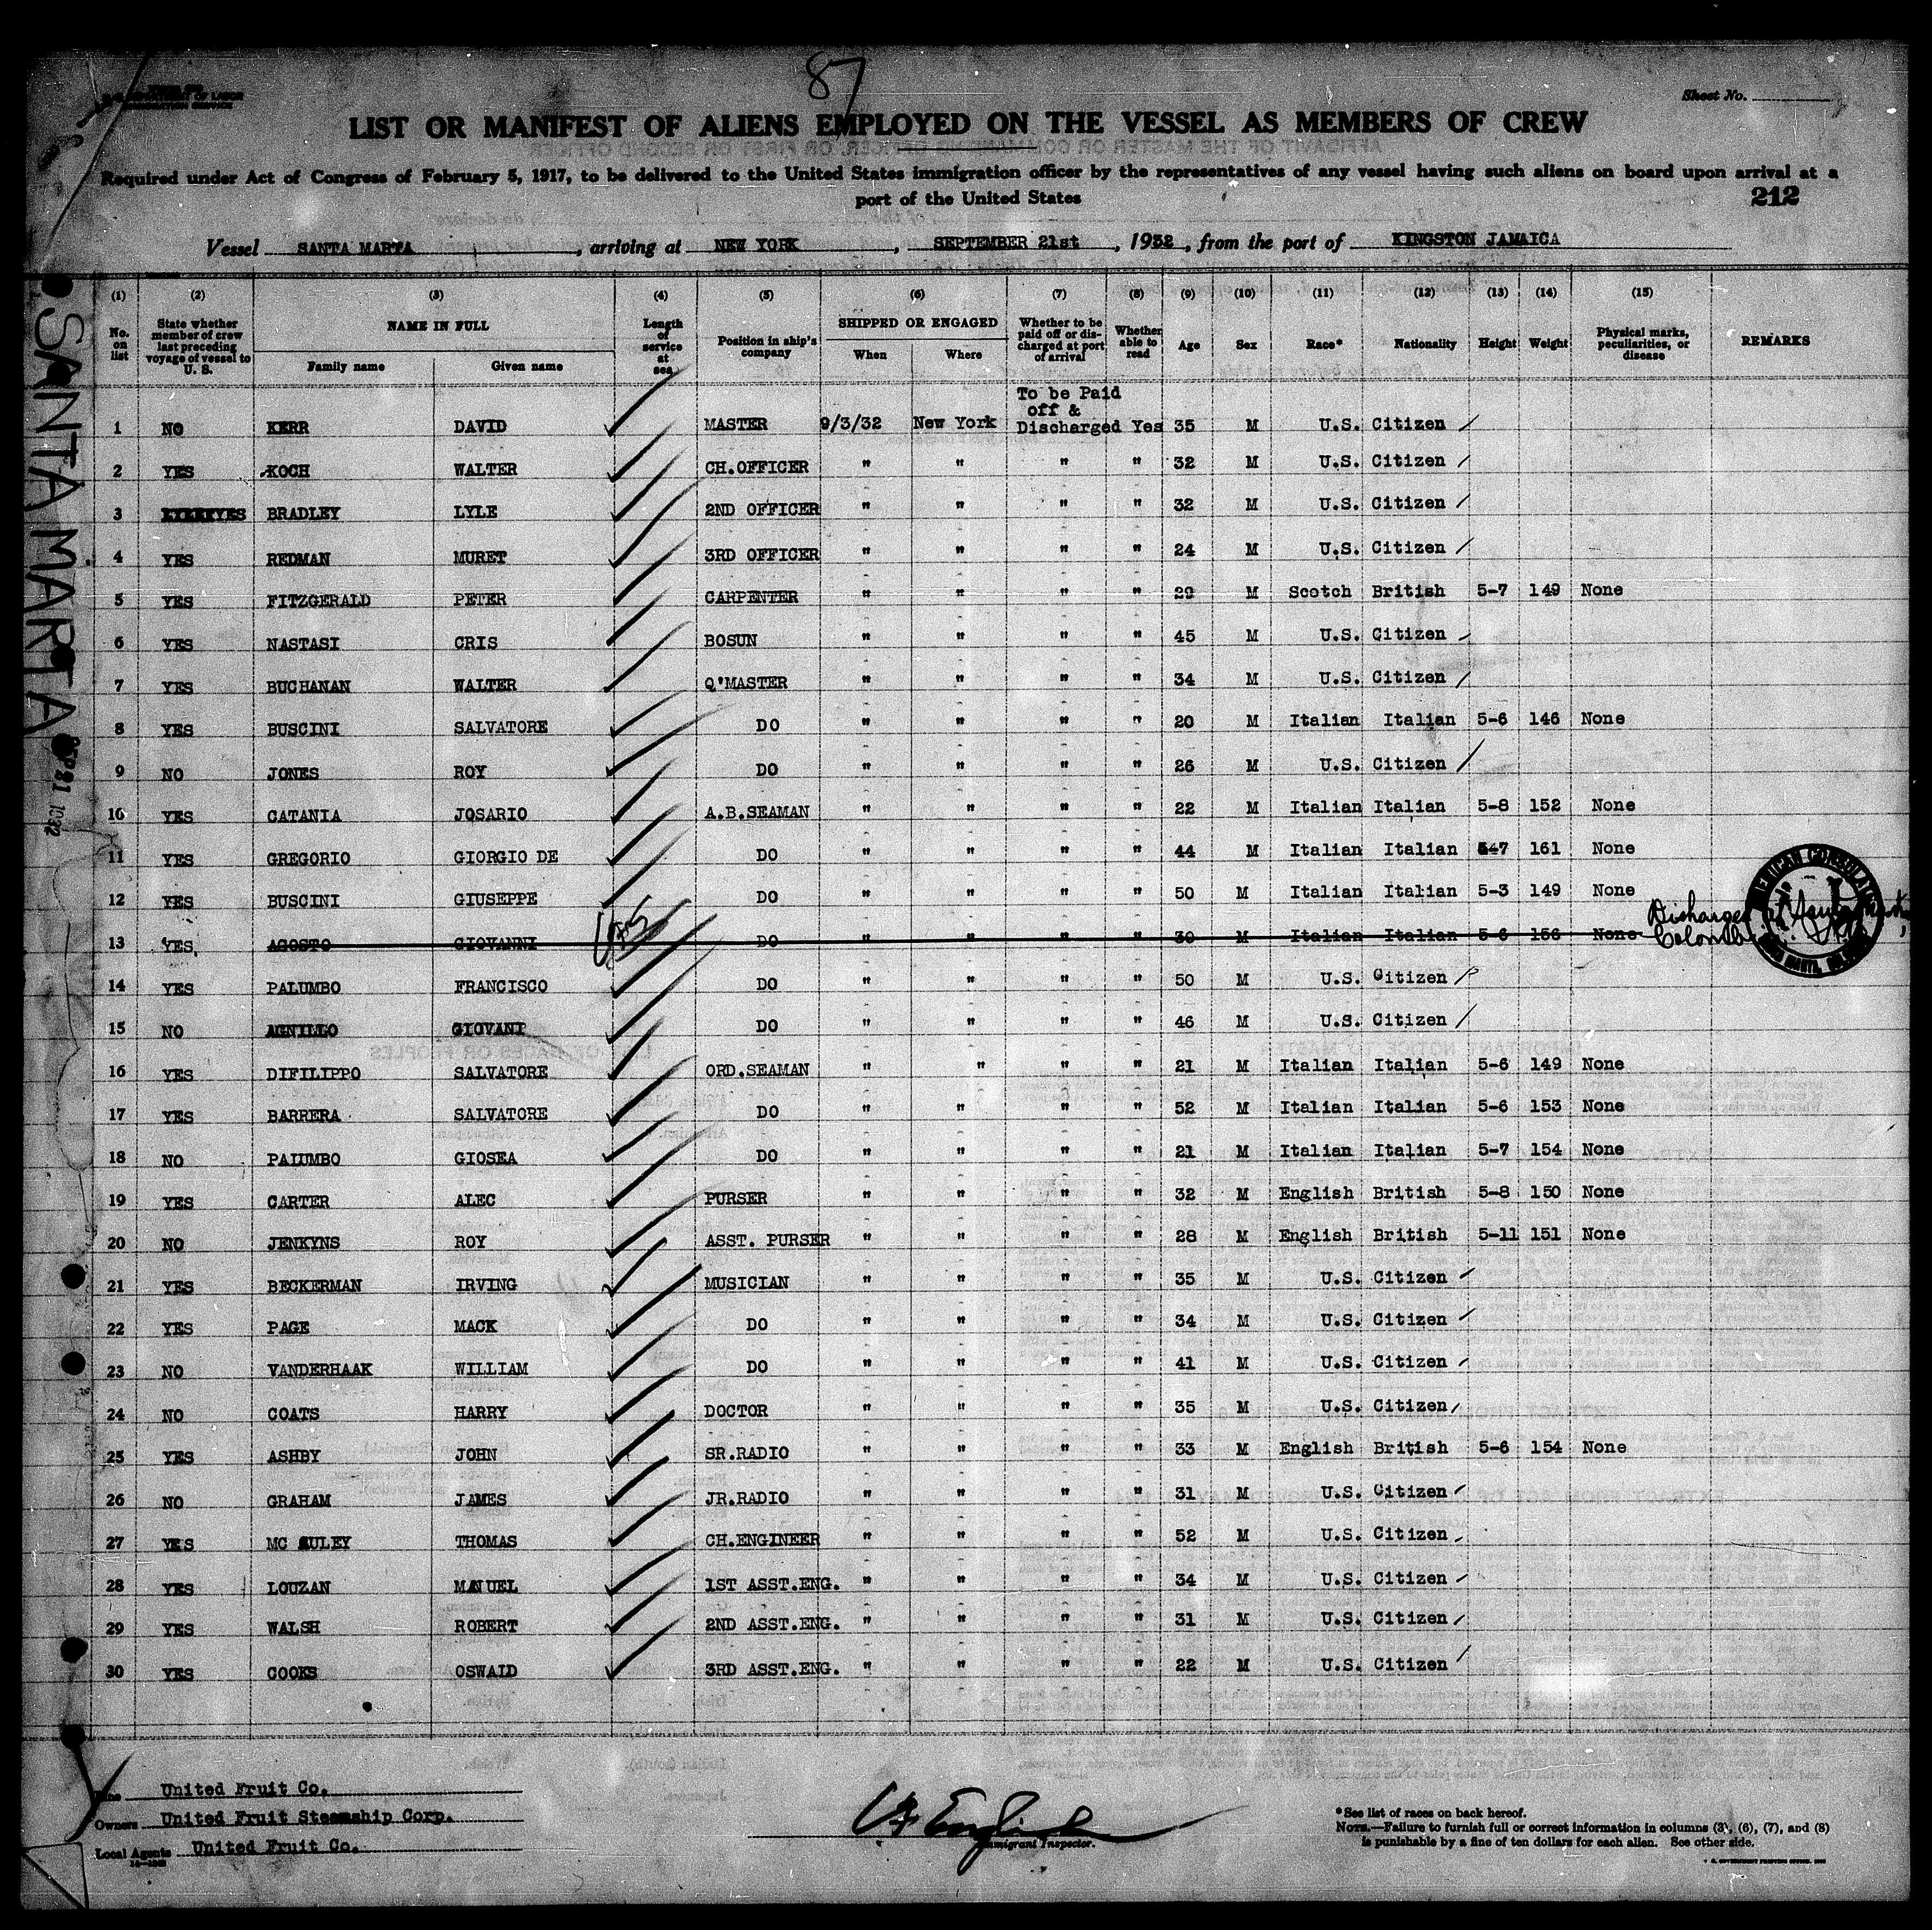 87
DEPARTMENT OF LABOR
IMMIGRATION SERVICE
Sheet No.
LIST OR MANIFEST OF ALIENS EMPLOYED ON THE VESSEL AS MEMBERS OF CREW
Required under Act of Congress of February 5, 1917, to be delivered to the United States immigration officer by the representatives of any vessel having such aliens on board upon arrival at a
port of the United States
212
Vessel SANTA MARTA, arriving at NEW YORK, SEPTEMBER 21st, 1932, from the port of KINGSTON JAMAICA
SANTA MARTA
(1) (2) (3) (4) (5) (6) (7) (8) (9) (10) (11) (12) (13) (14) (15)
No. on list State whether member of crew last preceding voyage of vessel to U. S. NAME IN FULL Family name Given name Length of service at sea Position in ship's company SHIPPED OR ENGAGED When Where Whether to be paid off or discharged at port of arrival Whether able to read Age Sex Race* Nationality Height Weight Physical marks, peculiarities, or disease REMARKS
1 NO KERR DAVID MASTER 9/3/32 New York To be Paid off & Discharged Yes 35 M U.S. Citizen
2 YES KOCH WALTER CH.OFFICER " " " " 32 M U.S. Citizen
3 YES BRADLEY LYLE 2ND OFFICER " " " " 32 M U.S. Citizen
4 YES REDMAN MURET 3RD OFFICER " " " " 24 M U.S. Citizen
5 YES FITZGERALD PETER CARPENTER " " " " 29 M Scotch British 5-7 149 None
6 YES NASTASI CRIS BOSUN " " " " 45 M U.S. Citizen
7 YES BUCHANAN WALTER Q'MASTER " " " " 34 M U.S. Citizen
8 YES BUSCINI SALVATORE DO " " " " 20 M Italian Italian 5-6 146 None
9 NO JONES ROY DO " " " " 26 M U.S. Citizen
10 YES CATANIA JOSARIO A.B.SEAMAN " " " " 22 M Italian Italian 5-8 152 None
11 YES GREGORIO GIORGIO DE DO " " " " 44 M Italian Italian 5-7 161 None
12 YES BUSCINI GIUSEPPE DO " " " " 50 M Italian Italian 5-3 149 None
13 YES AGOSTO GIOVANNI DO " " " " 30 M Italian Italian 5-6 156 None Discharged at Colombia
14 YES PALUMBO FRANCISCO DO " " " " 50 M U.S. Citizen
15 NO AGNILLO GIOVANI DO " " " " 46 M U.S. Citizen
16 YES DIFILIPPO SALVATORE ORD.SEAMAN " " " " 21 M Italian Italian 5-6 149 None
17 YES BARRERA SALVATORE DO " " " " 52 M Italian Italian 5-6 153 None
18 NO PALUMBO GIOSEA DO " " " " 21 M Italian Italian 5-7 154 None
19 YES CARTER ALEC PURSER " " " " 32 M English British 5-8 150 None
20 NO JENKYNS ROY ASST. PURSER " " " " 28 M English British 5-11 151 None
21 YES BECKERMAN IRVING MUSICIAN " " " " 35 M U.S. Citizen
22 YES PAGE MACK DO " " " " 34 M U.S. Citizen
23 NO VANDERHAAK WILLIAM DO " " " " 41 M U.S. Citizen
24 NO COATS HARRY DOCTOR " " " " 35 M U.S. Citizen
25 YES ASHBY JOHN SR.RADIO " " " " 33 M English British 5-6 154 None
26 NO GRAHAM JAMES JR.RADIO " " " " 31 M U.S. Citizen
27 YES MC AULEY THOMAS CH.ENGINEER " " " " 52 M U.S. Citizen
28 YES LOUZAN MANUEL 1ST ASST.ENG. " " " " 34 M U.S. Citizen
29 YES WALSH ROBERT 2ND ASST.ENG. " " " " 31 M U.S. Citizen
30 YES COOKS OSWALD 3RD ASST.ENG. " " " " 22 M U.S. Citizen
Line United Fruit Co.
Owners United Fruit Steamship Corp.
Local Agents United Fruit Co.
English
Immigrant Inspector.
*See list of races on back hereof.
NOTE.—Failure to furnish full or correct information in columns (3), (6), (7), and (8)
is punishable by a fine of ten dollars for each alien. See other side.